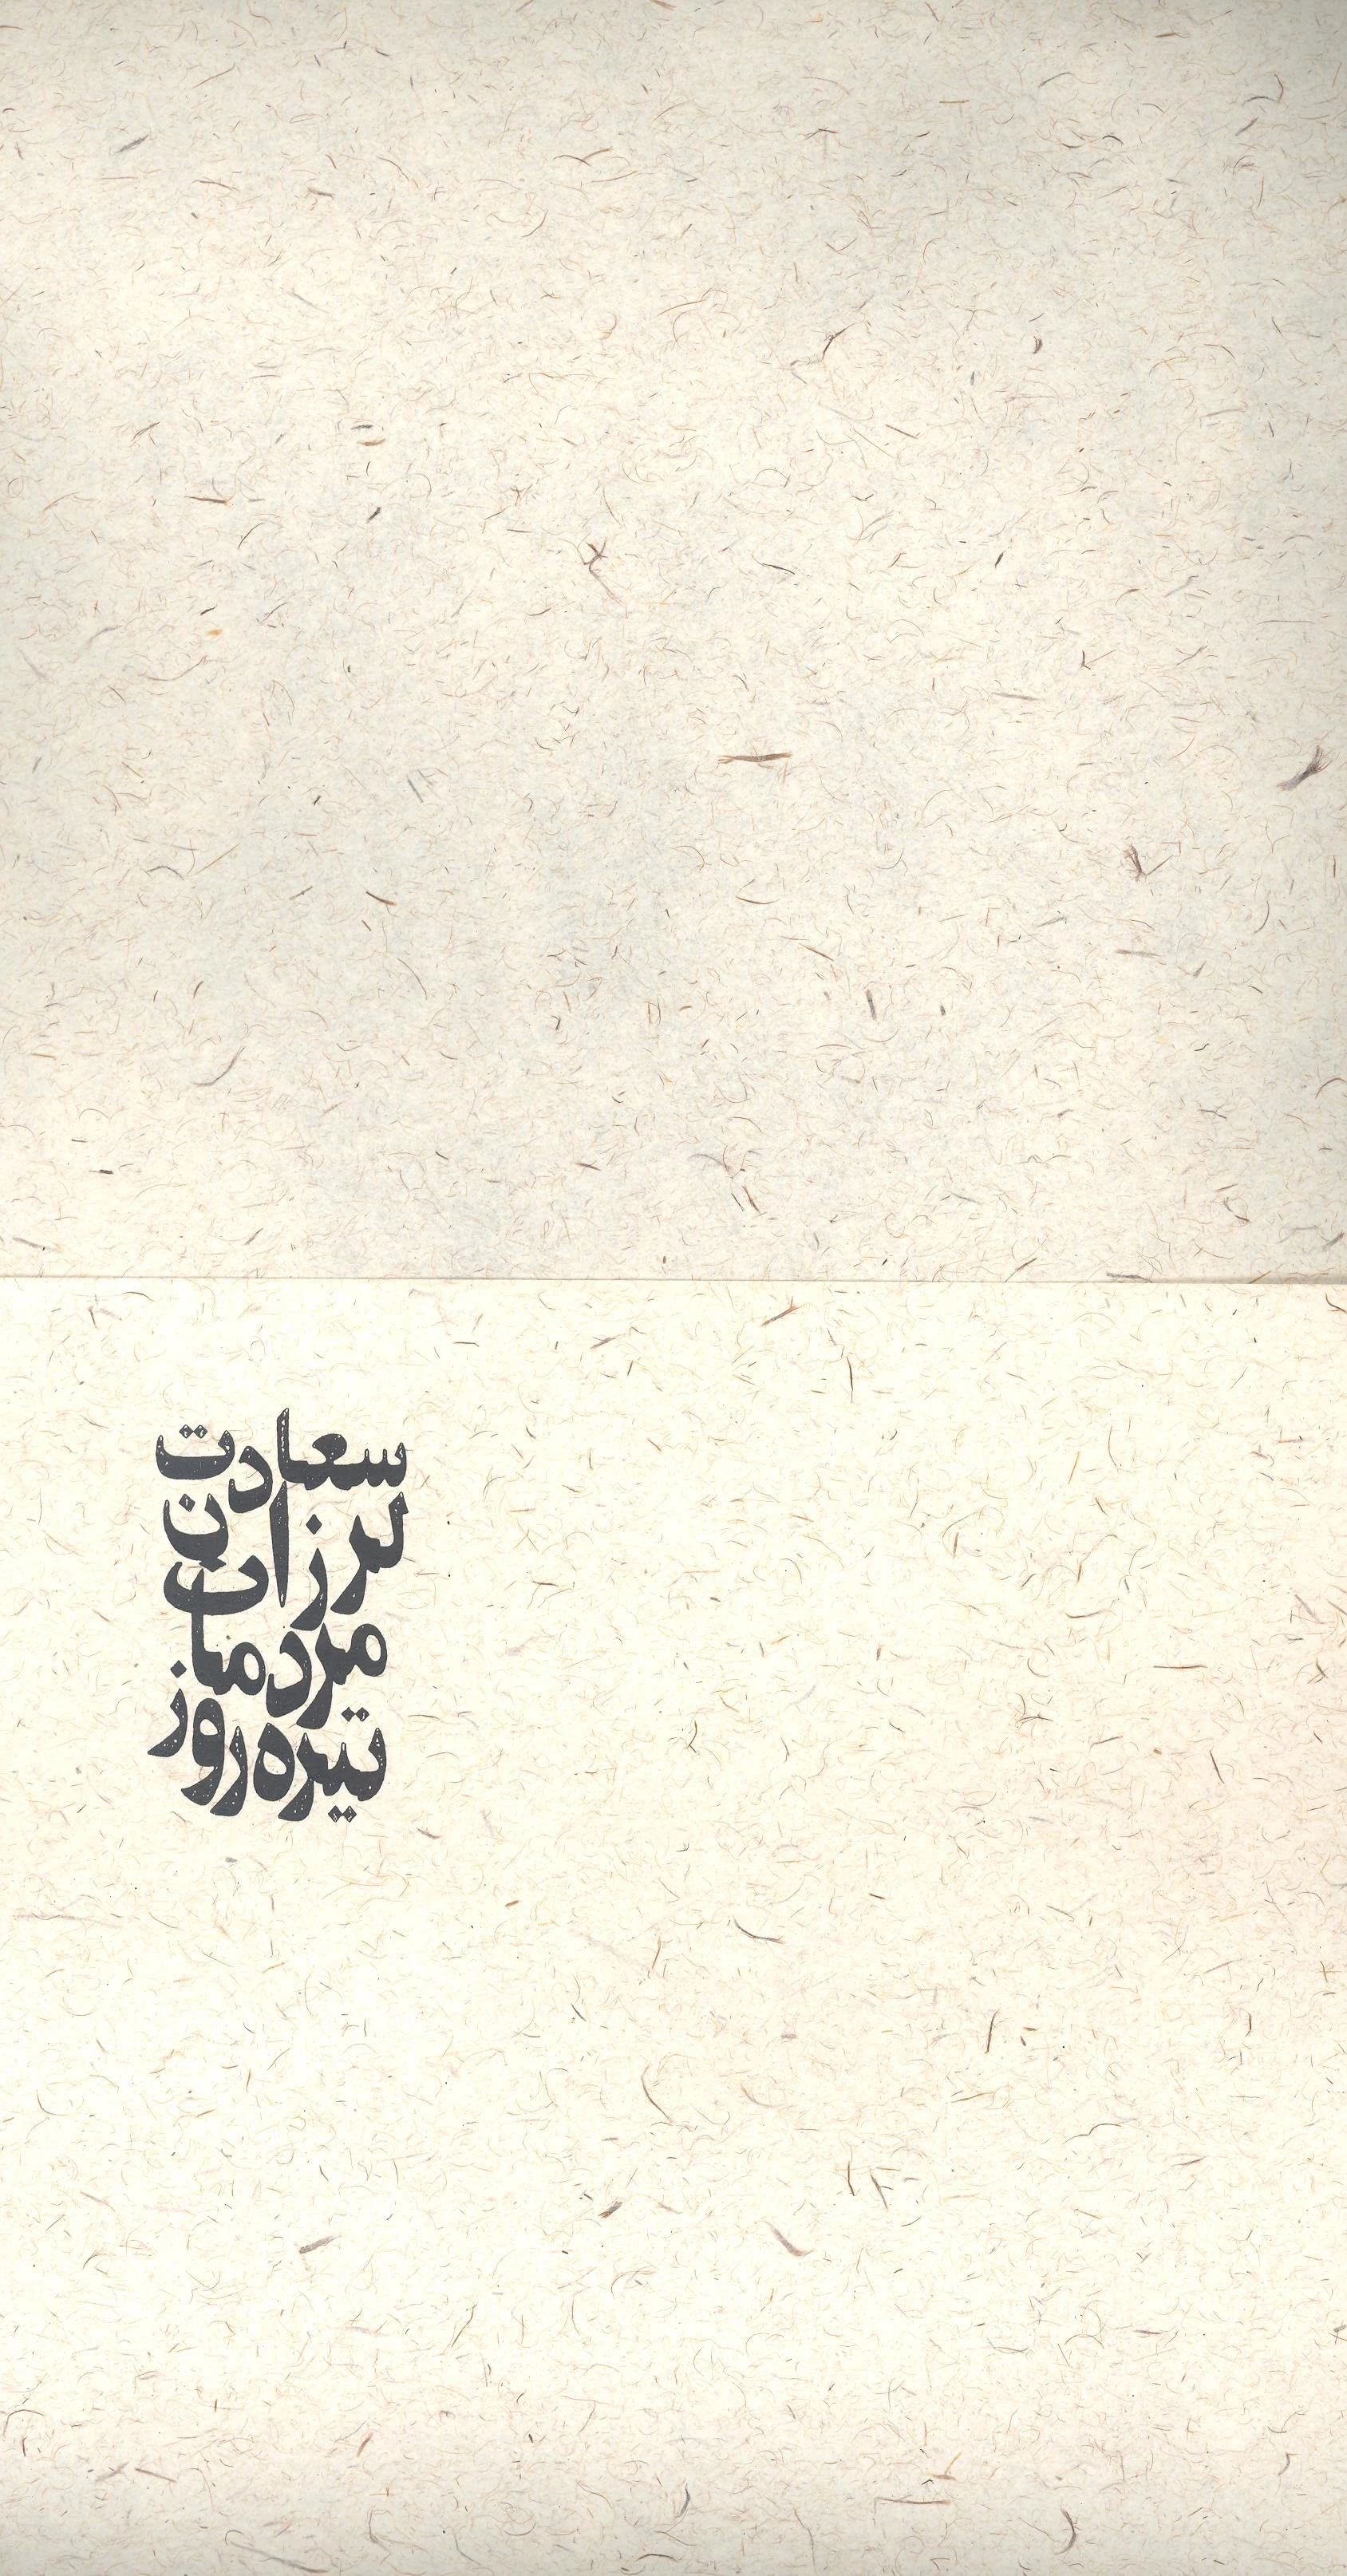 سعادت
لرزان
مردمان
تیره‌روز